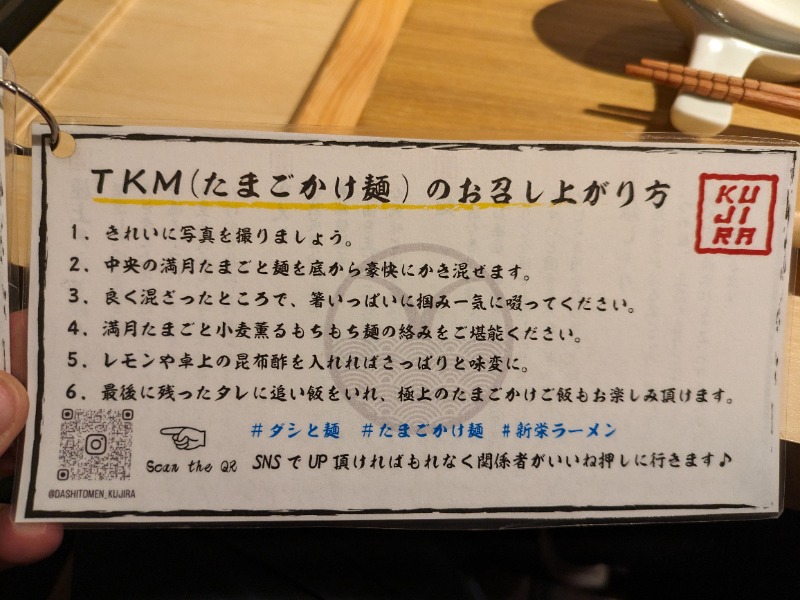 TKM(たまごかけ麺)のお召し上がり方
KU
JI
RA
1. きれいに写真を撮りましょう。
2. 中央の満月たまごと麺を底から豪快にかき混ぜます。
3. 良く混ざったところで、箸いっぱいに掴み一気に啜ってください。
4. 満月たまごと小麦薫るもちもち麺の絡みをご堪能ください。
5. レモンや卓上の昆布酢を入れればさっぱりと味変に。
6. 最後に残ったタレに追い飯をいれ、極上のたまごかけご飯もお楽しみ頂けます。
#ダシと麺 #たまごかけ麺 #新栄ラーメン
Scan the QR SNSでUP頂ければもれなく関係者がいいね押しに行きます♪
@DASHITOMEN_KUJIRA